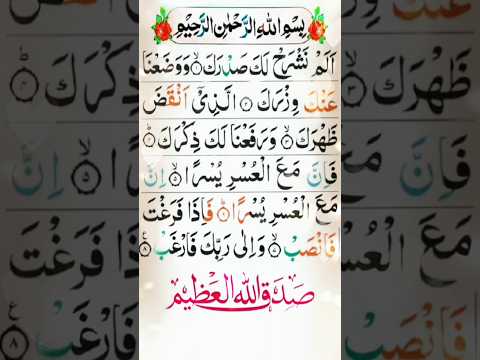 بِسْمِ اللهِ الرَّحْمٰنِ الرَّحِيْمِ
اَلَمْ نَشْرَحْ لَكَ صَدْرَكَ ۙ۝١ وَوَضَعْنَا
عَنْكَ وِزْرَكَ ۙ۝٢ الَّذِيْٓ اَنْقَضَ
ظَهْرَكَ ۙ۝٣ وَرَفَعْنَا لَكَ ذِكْرَكَ ؕ۝٤
فَاِنَّ مَعَ الْعُسْرِ يُسْرًا ۙ۝٥ اِنَّ
مَعَ الْعُسْرِ يُسْرًا ؕ۝٦ فَاِذَا فَرَغْتَ
فَانْصَبْ ۙ۝٧ وَاِلٰى رَبِّكَ فَارْغَبْ ۝٨
صَدَقَ اللهُ الْعَظِيْم